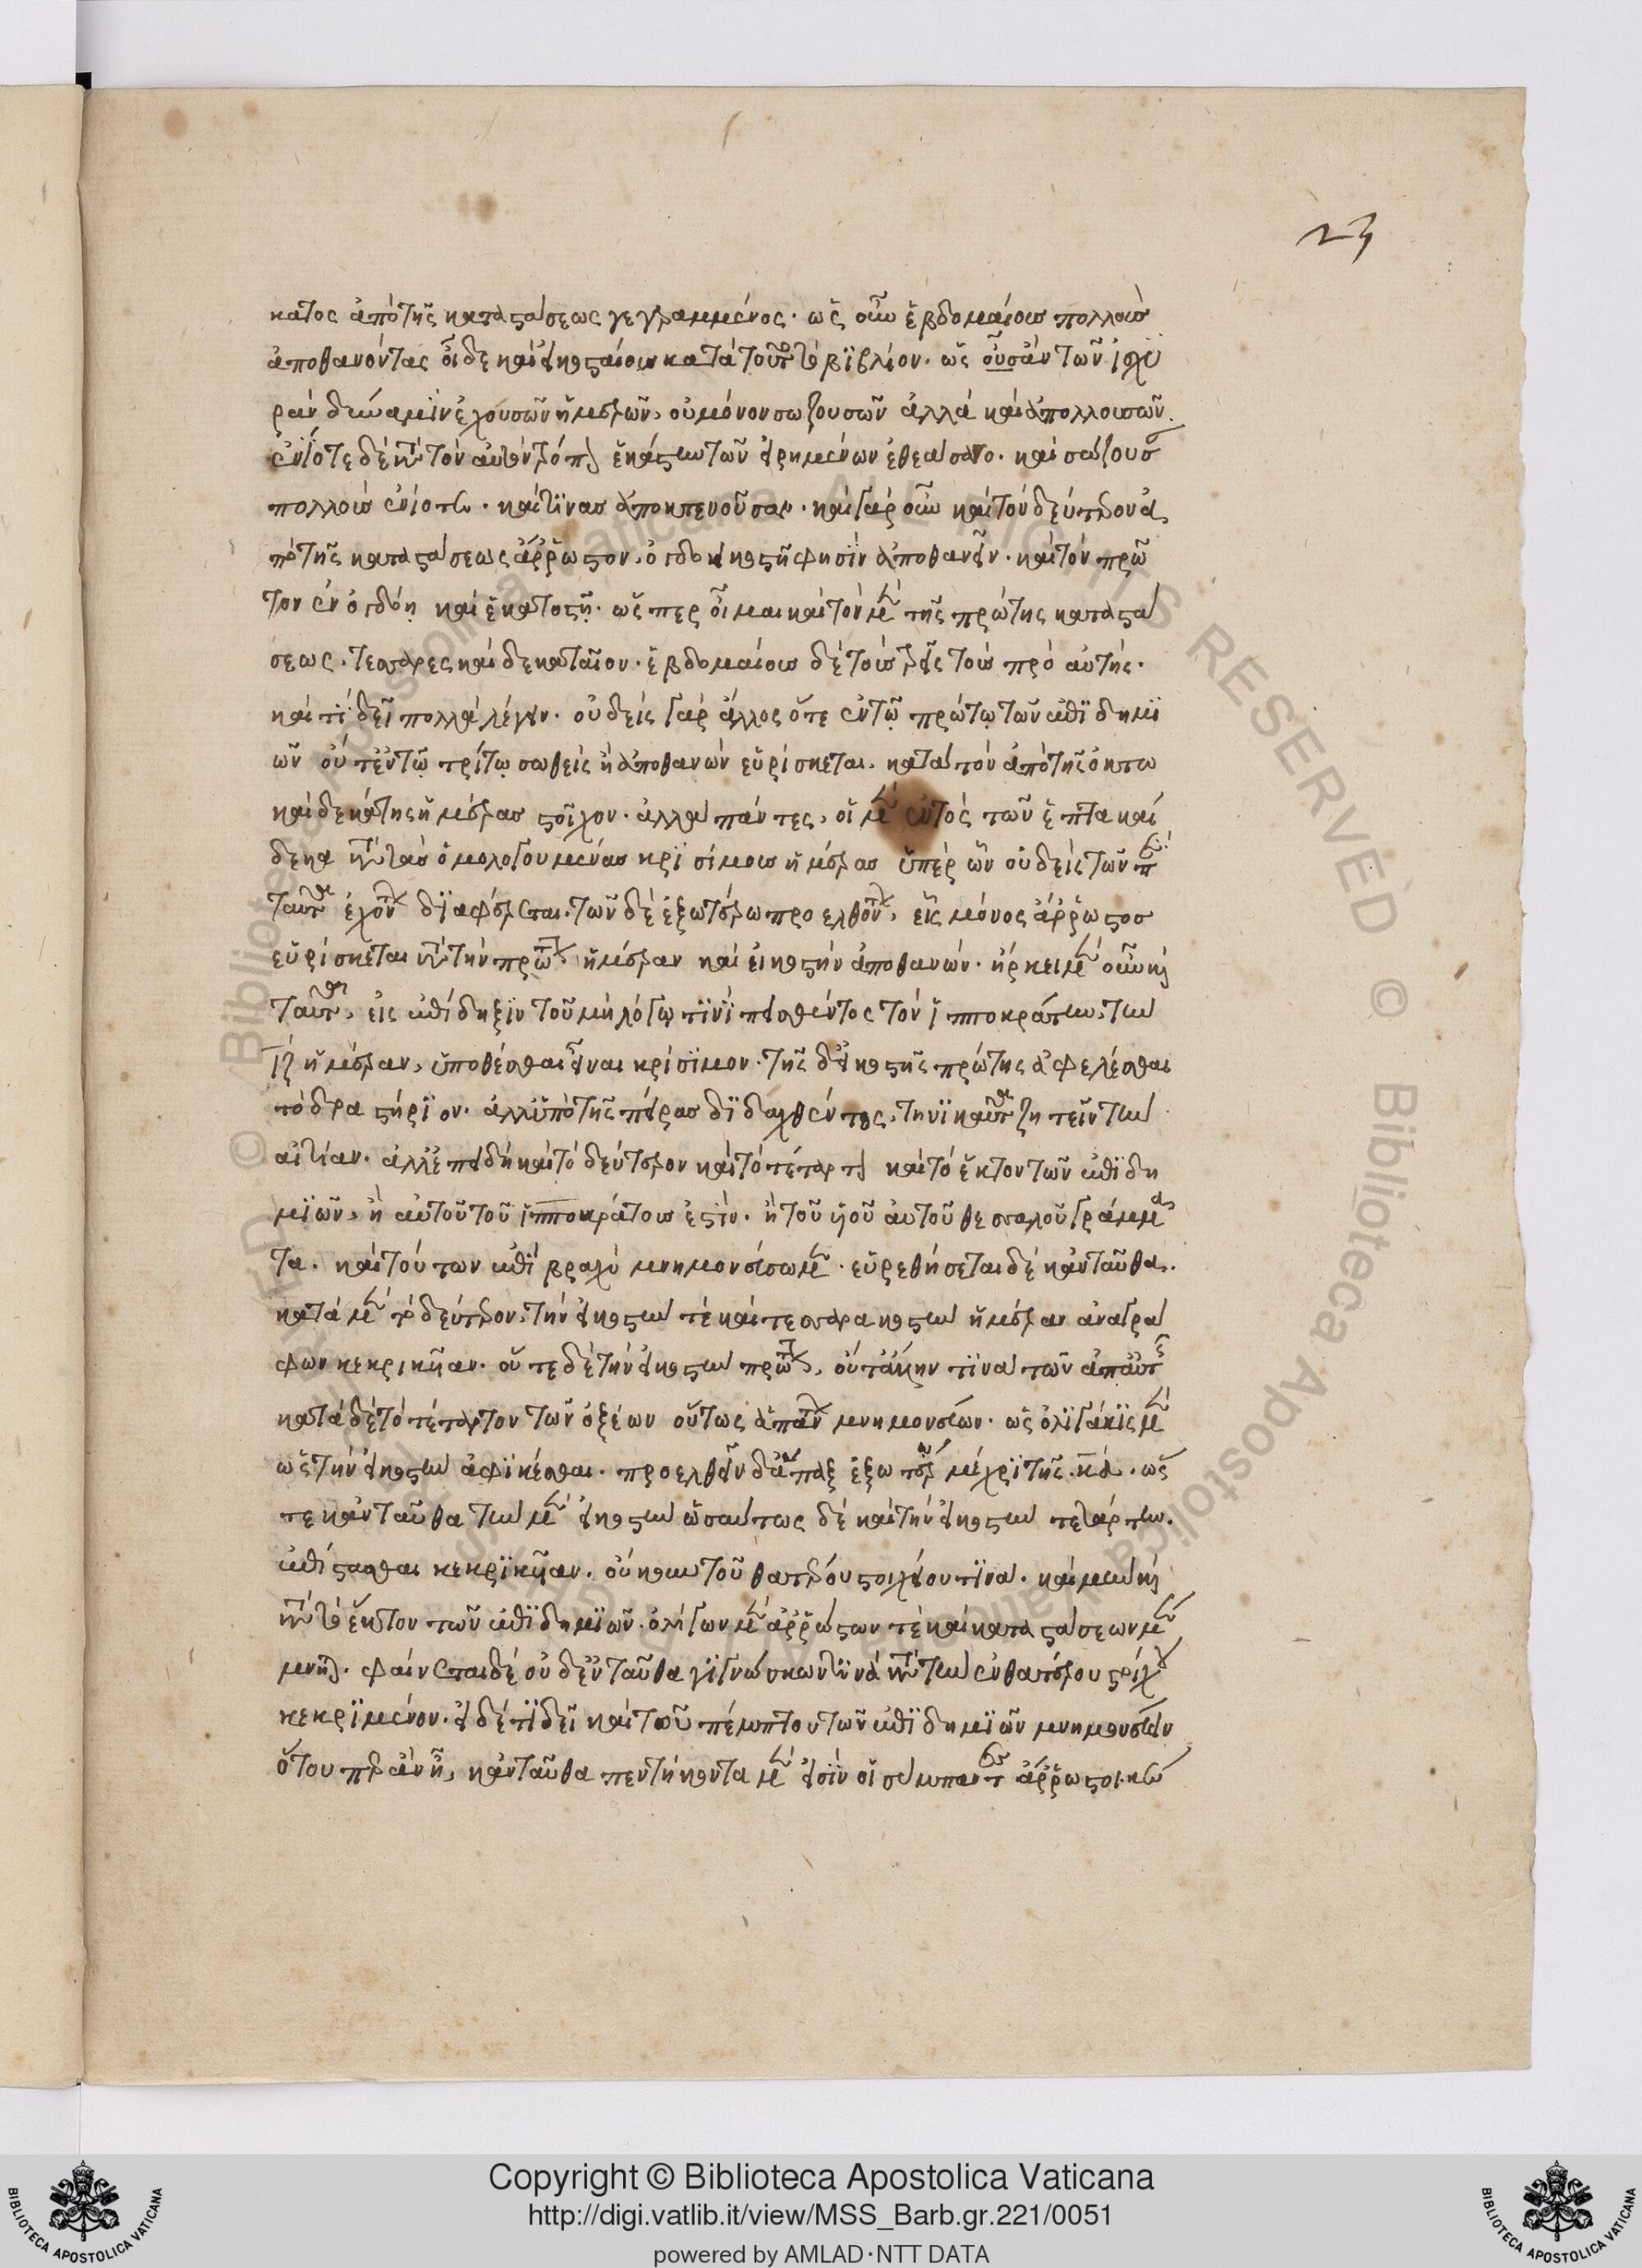 23
κατος ἀπὸ τῆς καταστάσεως γεγραμμένος. ὡς οὖν ἑβδομαίους πολλοὺς
ἀποθανόντας οἶδε καὶ εἰκοσταίους κατὰ τοῦτο τὸ βϊβλίον. ὡς οὖσἂν τῶν ἰσχυ
ρὰν δύναμϊν ἐχουσῶν ἡμερῶν, οὐ μόνον σωζουσῶν ἀλλὰ καὶ ἀπολλουσῶν.
ἐνίοτε δὲ κατὰ τὸν αὐτὸν τρόπον ἑκάστην τῶν εἰρημένων ἐθεάσατο. καὶ σώζουσαν
πολλοὺς ἐνίοτε. καὶ τϊνας ἀποκτενοῦσαν. καὶ γὰρ οὖν καὶ τὸν δεύτερον ἀ
πὸ τῆς καταστάσεως ἄρρωστον, ὀγδοηκοστῇ φησὶν ἀποθανεῖν. καὶ τὸν πρῶ
τον ἐν ὀγδόῃ καὶ ἑκατοστῇ. ὥσπερ οἶμαι καὶ τὸν μὲν τῆς πρώτης καταστά
σεως. τεσσαρεσκαιδεκαταῖον. ἑβδομαίους δὲ τοὺς τρεῖς τοὺς πρὸ αὐτῆς.
καὶ τί δεῖ πολλὰ λέγειν. οὐδεὶς γὰρ ἄλλος οὔτε ἐν τῷ πρώτῳ τῶν ἐπϊδημϊ
ῶν οὔτ' ἐν τῷ τρίτῳ σωθεὶς ἢ ἀποθανὼν εὑρίσκεται. κατὰ τὸν ἀπὸ τῆς ὀκτω
καιδεκάτης ἡμέρας στοῖχον. ἀλλὰ πάντες, οἱ μὲν ἐντὸς τῶν ἑπτὰ καὶ
δεκα κατὰ τὰς ὁμολογουμένας κρϊσίμους ἡμέρας ὑπὲρ ὧν οὐδεὶς τῶν περὶ
ταῦτα ἐχόντων δϊαφέρεται. τῶν δὲ ἐξωτέρω προελθόντων, εἷς μόνος ἄρρωστος
εὑρίσκεται κατὰ τὴν πρώτην ἡμέραν καὶ εἰκοστὴν ἀποθανών. ἤρκει μὲν οὖν καὶ
ταῦτα, εἰς ἐπίδειξϊν τοῦ μὴ λόγῳ τϊνὶ πεισθέντος τὸν ἱπποκράτην, τὴν
ιζ ἡμέραν, ὑποθέσθαι εἶναι κρίσϊμον. τῆς δ' εἰκοστῆς πρώτης ἀφελέσθαι
τὸ δραστήρϊον. ἀλλ' ὑπὸ τῆς πείρας δϊδαχθέντος, τηνϊκαῦτα ζητεῖν τὴν
αἰτίαν. ἀλλ' ἐπειδὴ καὶ τὸ δεύτερον καὶ τὸ τέταρτον καὶ τὸ ἕκτον τῶν ἐπϊδη
μϊῶν, ἢ αὐτοῦ τοῦ ἱπποκράτους ἐστὶν. ἢ τοῦ υἱοῦ αὐτοῦ θεσσαλοῦ γράμμα
τα. καὶ τούτων ἐπὶ βραχὺ μνημονεύσωμεν. εὑρεθήσεται δὲ κἀνταῦθα.
κατὰ μὲν τὸ δεύτερον, τὴν εἰκοστὴν τὲ καὶ τεσσαρακοστὴν ἡμέραν ἀναγρά
φων κεκρικυῖαν. οὔτε δὲ τὴν εἰκοστὴν πρώτην, οὔτ' ἄλλην τϊνὰ τῶν ἀπ' αὐτῆς
κατὰ δὲ τὸ τέταρτον τῶν ὀξέων οὕτως ἁπάντων μνημονεύων. ὡς ὀλϊγάκϊς μὲν
ὡς τὴν εἰκοστὴν ἀφϊκέσθαι. προελθεῖν δ' ἅπαξ ἐξωτέρω μέχρϊ τῆς κδ. ὥς
τε κἀνταῦθα τὴν μὲν εἰκοστὴν ὡσαύτως δὲ καὶ τὴν εἰκοστὴν τετάρτην.
ἐπίστασθαι κεκρϊκυῖαν. οὐκ οὖν τοῦ θατέρου στοιχείου τϊνά. καὶ μὴν καὶ
κατὰ τὸ ἕκτον τῶν ἐπϊδημϊῶν. ὀλίγων μὲν ἀρρώστων τὲ καὶ καταστάσεων μέ
μνηται. φαίνεται δὲ οὐδ' ἐνταῦθα γϊγνώσκων τϊνὰ κατὰ τὴν ἐνθατέρου στοίχου
κεκρϊμένον. εἰ δέ τϊ δεῖ καὶ τοῦ πέμπτου τῶν ἐπϊδημϊῶν μνημονεύειν
ὅτου περ ἂν ᾖ, κἀνταῦθα πεντήκοντα μὲν εἰσὶν οἱ σύμπαντες ἄρρωστοι. καὶ
Copyright © Biblioteca Apostolica Vaticana
http://digi.vatlib.it/view/MSS_Barb.gr.221/0051
powered by AMLAD·NTT DATA